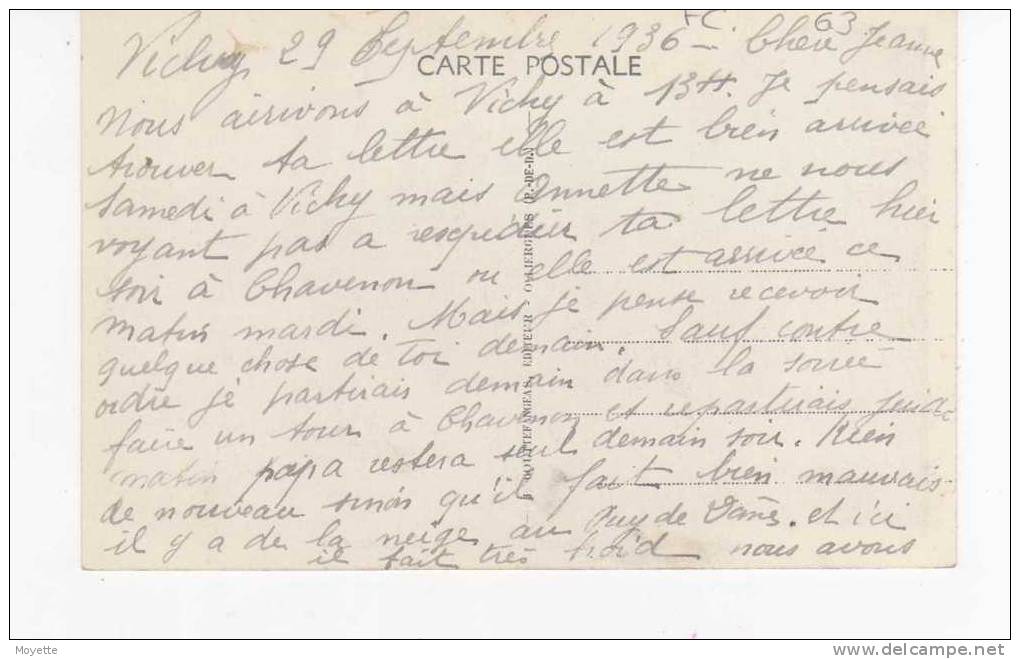 FC 63
Vichy 29 Septembre 1936 - Chère Jeanne
CARTE POSTALE
Nous arivons à Vichy à 13H. Je pensais
trouver ta lettre elle est bien arrivée
samedi à Vichy mais Annette ne nous
voyant pas a resquédier ta lettre hier
soir à Chavenon ou elle est arrivée ce
matin mardi. Mais je pense recevoir
quelque chose de toi demain. Sauf contre
ordre je partirais demain dans la soirée
faire un tour à Chavenon et repartirais jeudi
matin papa restera seul demain soir. Rien
de nouveau sinon qu'il fait bien mauvais
il y a de la neige au Puy de Dôme. et ici
il fait très froid nous avons
EDITEUR - OLLIERGUES (P.-DE-D.)
Moyette
www.delcampe.net